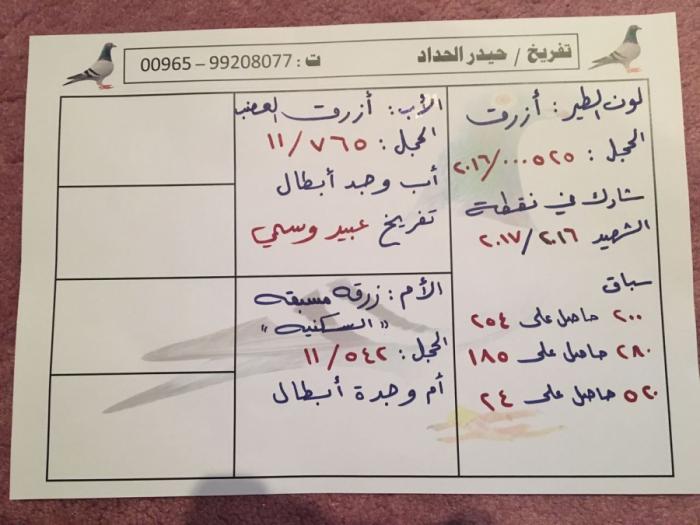 تفريخ / حيدر الحداد ت : 99208077 – 00965
لون الطير : أزرق
الحجل : ٢٠١٦/٠٠٠٥٢٥
شارك في نقطة
الشهيد ٢٠١٧/٢٠١٦
سباق
٢٠٠ حاصل على ٢٥٤
٢٨٠ حاصل على ١٨٥
٥٢٠ حاصل على ٢٤
الأب : أزرق
الحجل : ١١/٧٦٥
أب وجد أبطال
تفريخ عبيد وسمي
الأم : زرقه مسبقه
"السكنيه"
الحجل : ١١/٥٤٢
أم وجدة أبطال